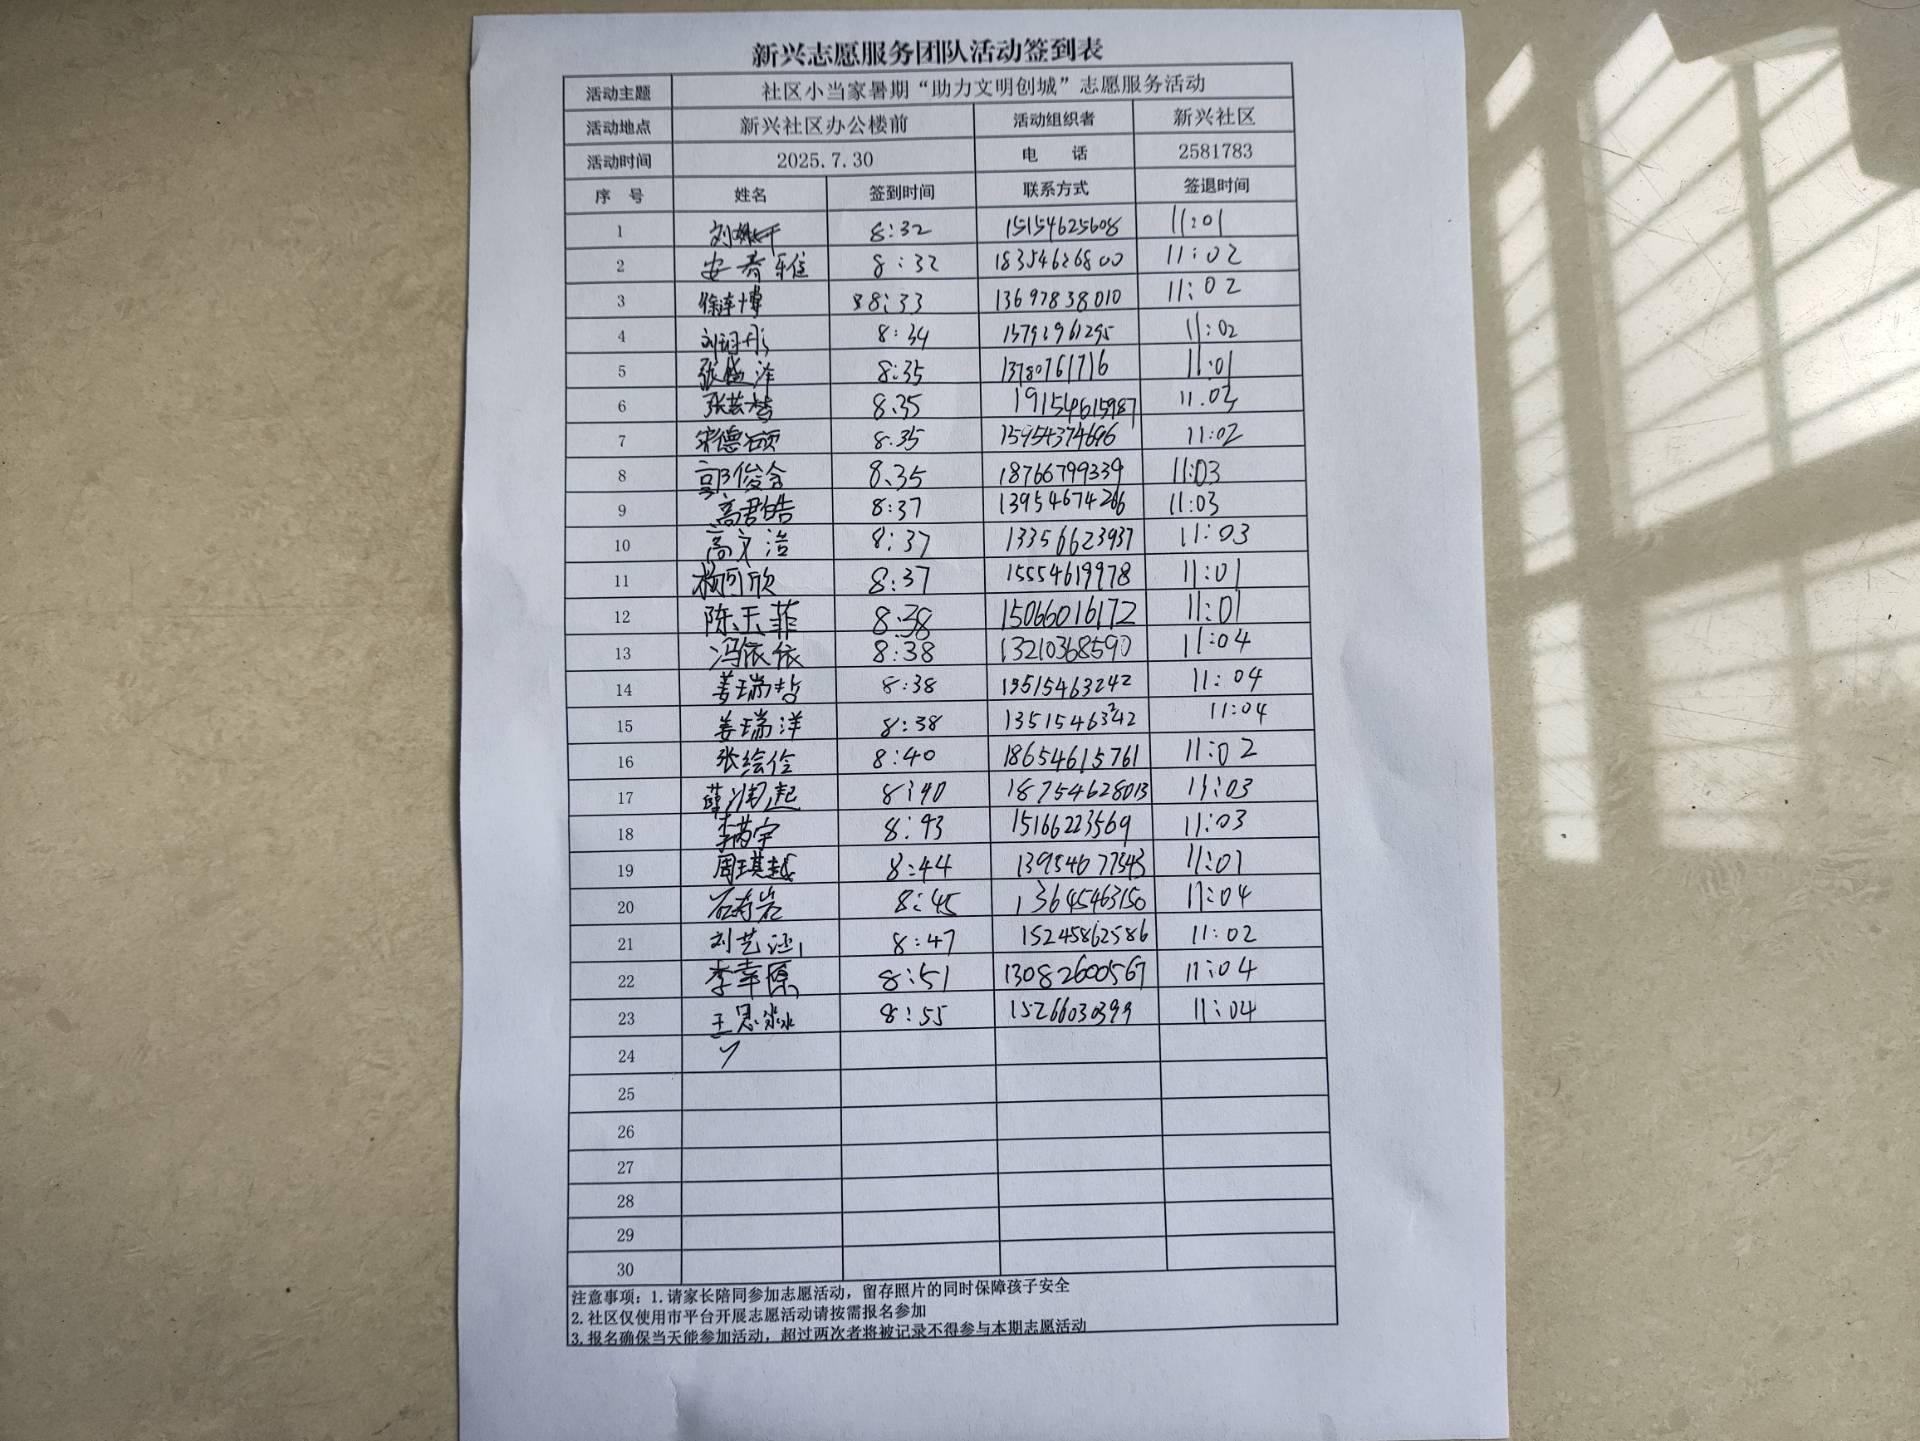 新兴志愿服务团队活动签到表
活动主题 社区小当家暑期“助力文明创城”志愿服务活动
活动地点 新兴社区办公楼前 活动组织者 新兴社区
活动时间 2025.7.30 电 话 2581783
序 号 姓名 签到时间 联系方式 签退时间
1 刘 8:32 15154625608 11:01
2 安 8:32 18354626800 11:02
3 徐 博 8:33 13697838010 11:02
4 刘 彤 8:34 11:02
5 张盛泽 8:35 13780761716 11:01
6 张芸梦 8.35 19154615987 11.03
7 宋德硕 8.35 15954374696 11:02
8 郭俊含 8.35 18766799339 11:03
9 高君皓 8:37 13954674266 11:03
10 高文浩 8:37 13356623937 11:03
11 杨可欣 8:37 15554619978 11:01
12 陈玉菲 8:38 15066016172 11:01
13 冯依依 8:38 13210368590 11:04
14 姜瑞哲 8:38 11:04
15 姜瑞洋 8:38 13515463242 11:04
16 张绘伦 8:40 18654615761 11:02
17 薛润起 8:40 18754628013 11:03
18 李芮宇 8:43 15166223569 11:03
19 周琪越 8:44 13954677543 11:01
20 石 岩 8:45 13645463150 11:04
21 刘艺涵 8:47 15245862586 11:02
22 李幸原 8:51 13082600567 11:04
23 王思淼 8:55 15266030399 11:04
24
25
26
27
28
29
30
注意事项：1.请家长陪同参加志愿活动，留存照片的同时保障孩子安全
2.社区仅使用市平台开展志愿活动请按需报名参加
3.报名确保当天能参加活动，超过两次者将被记录不得参与本期志愿活动